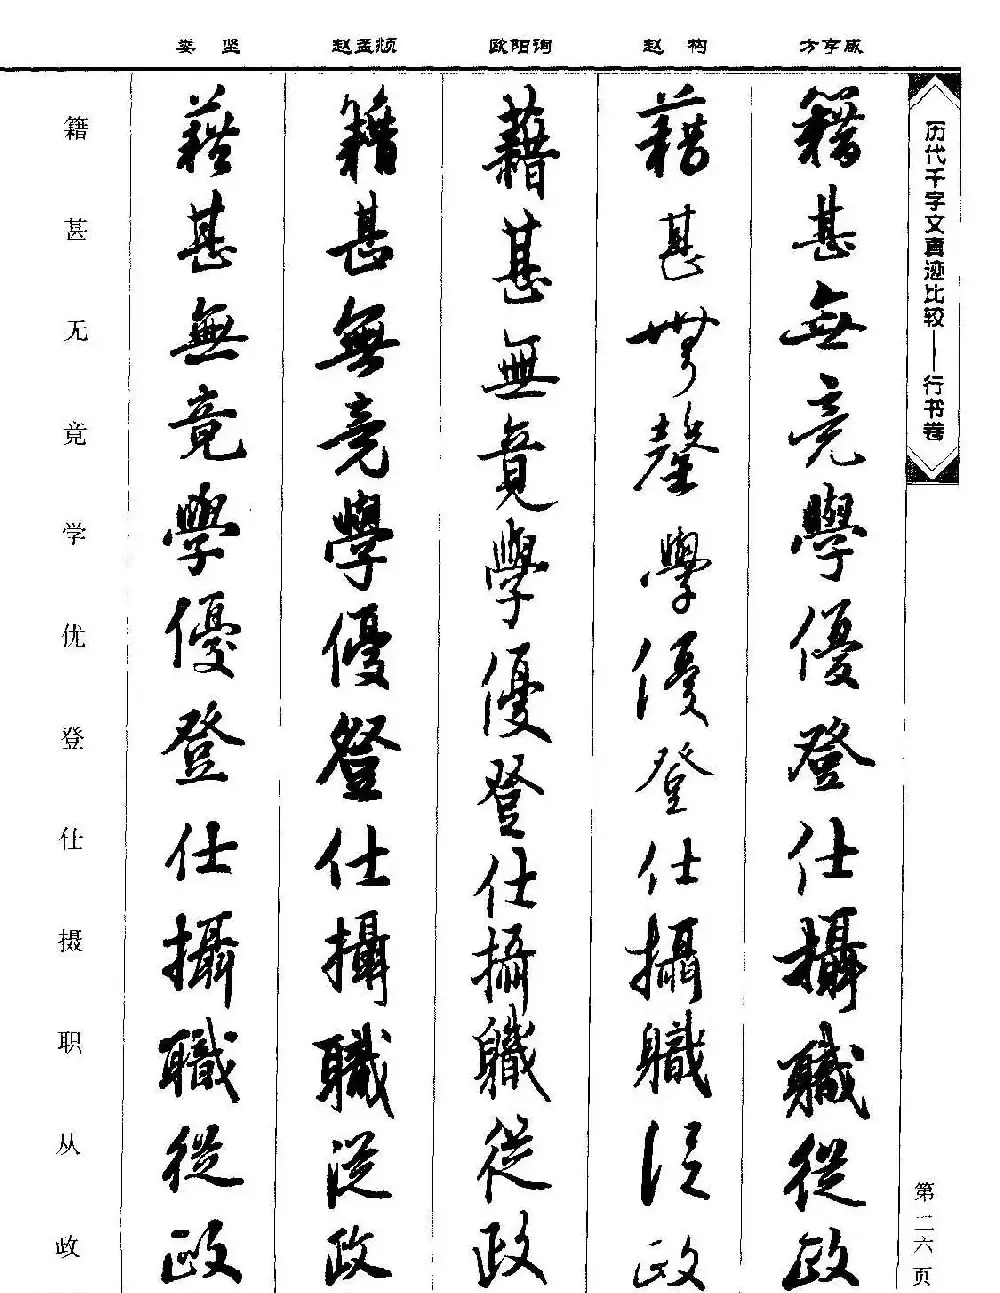 娄 坚 赵孟頫 欧阳询 赵 构 方亨咸
历代千字文真迹比较——行书卷
第二六页
籍甚無竟學優登仕攝職從政
藉甚無罄學優登仕攝職從政
藉甚無竟學優登仕攝職從政
籍甚無竟學優登仕攝職從政
藉甚無竟學優登仕攝職從政
籍甚无竟学优登仕摄职从政